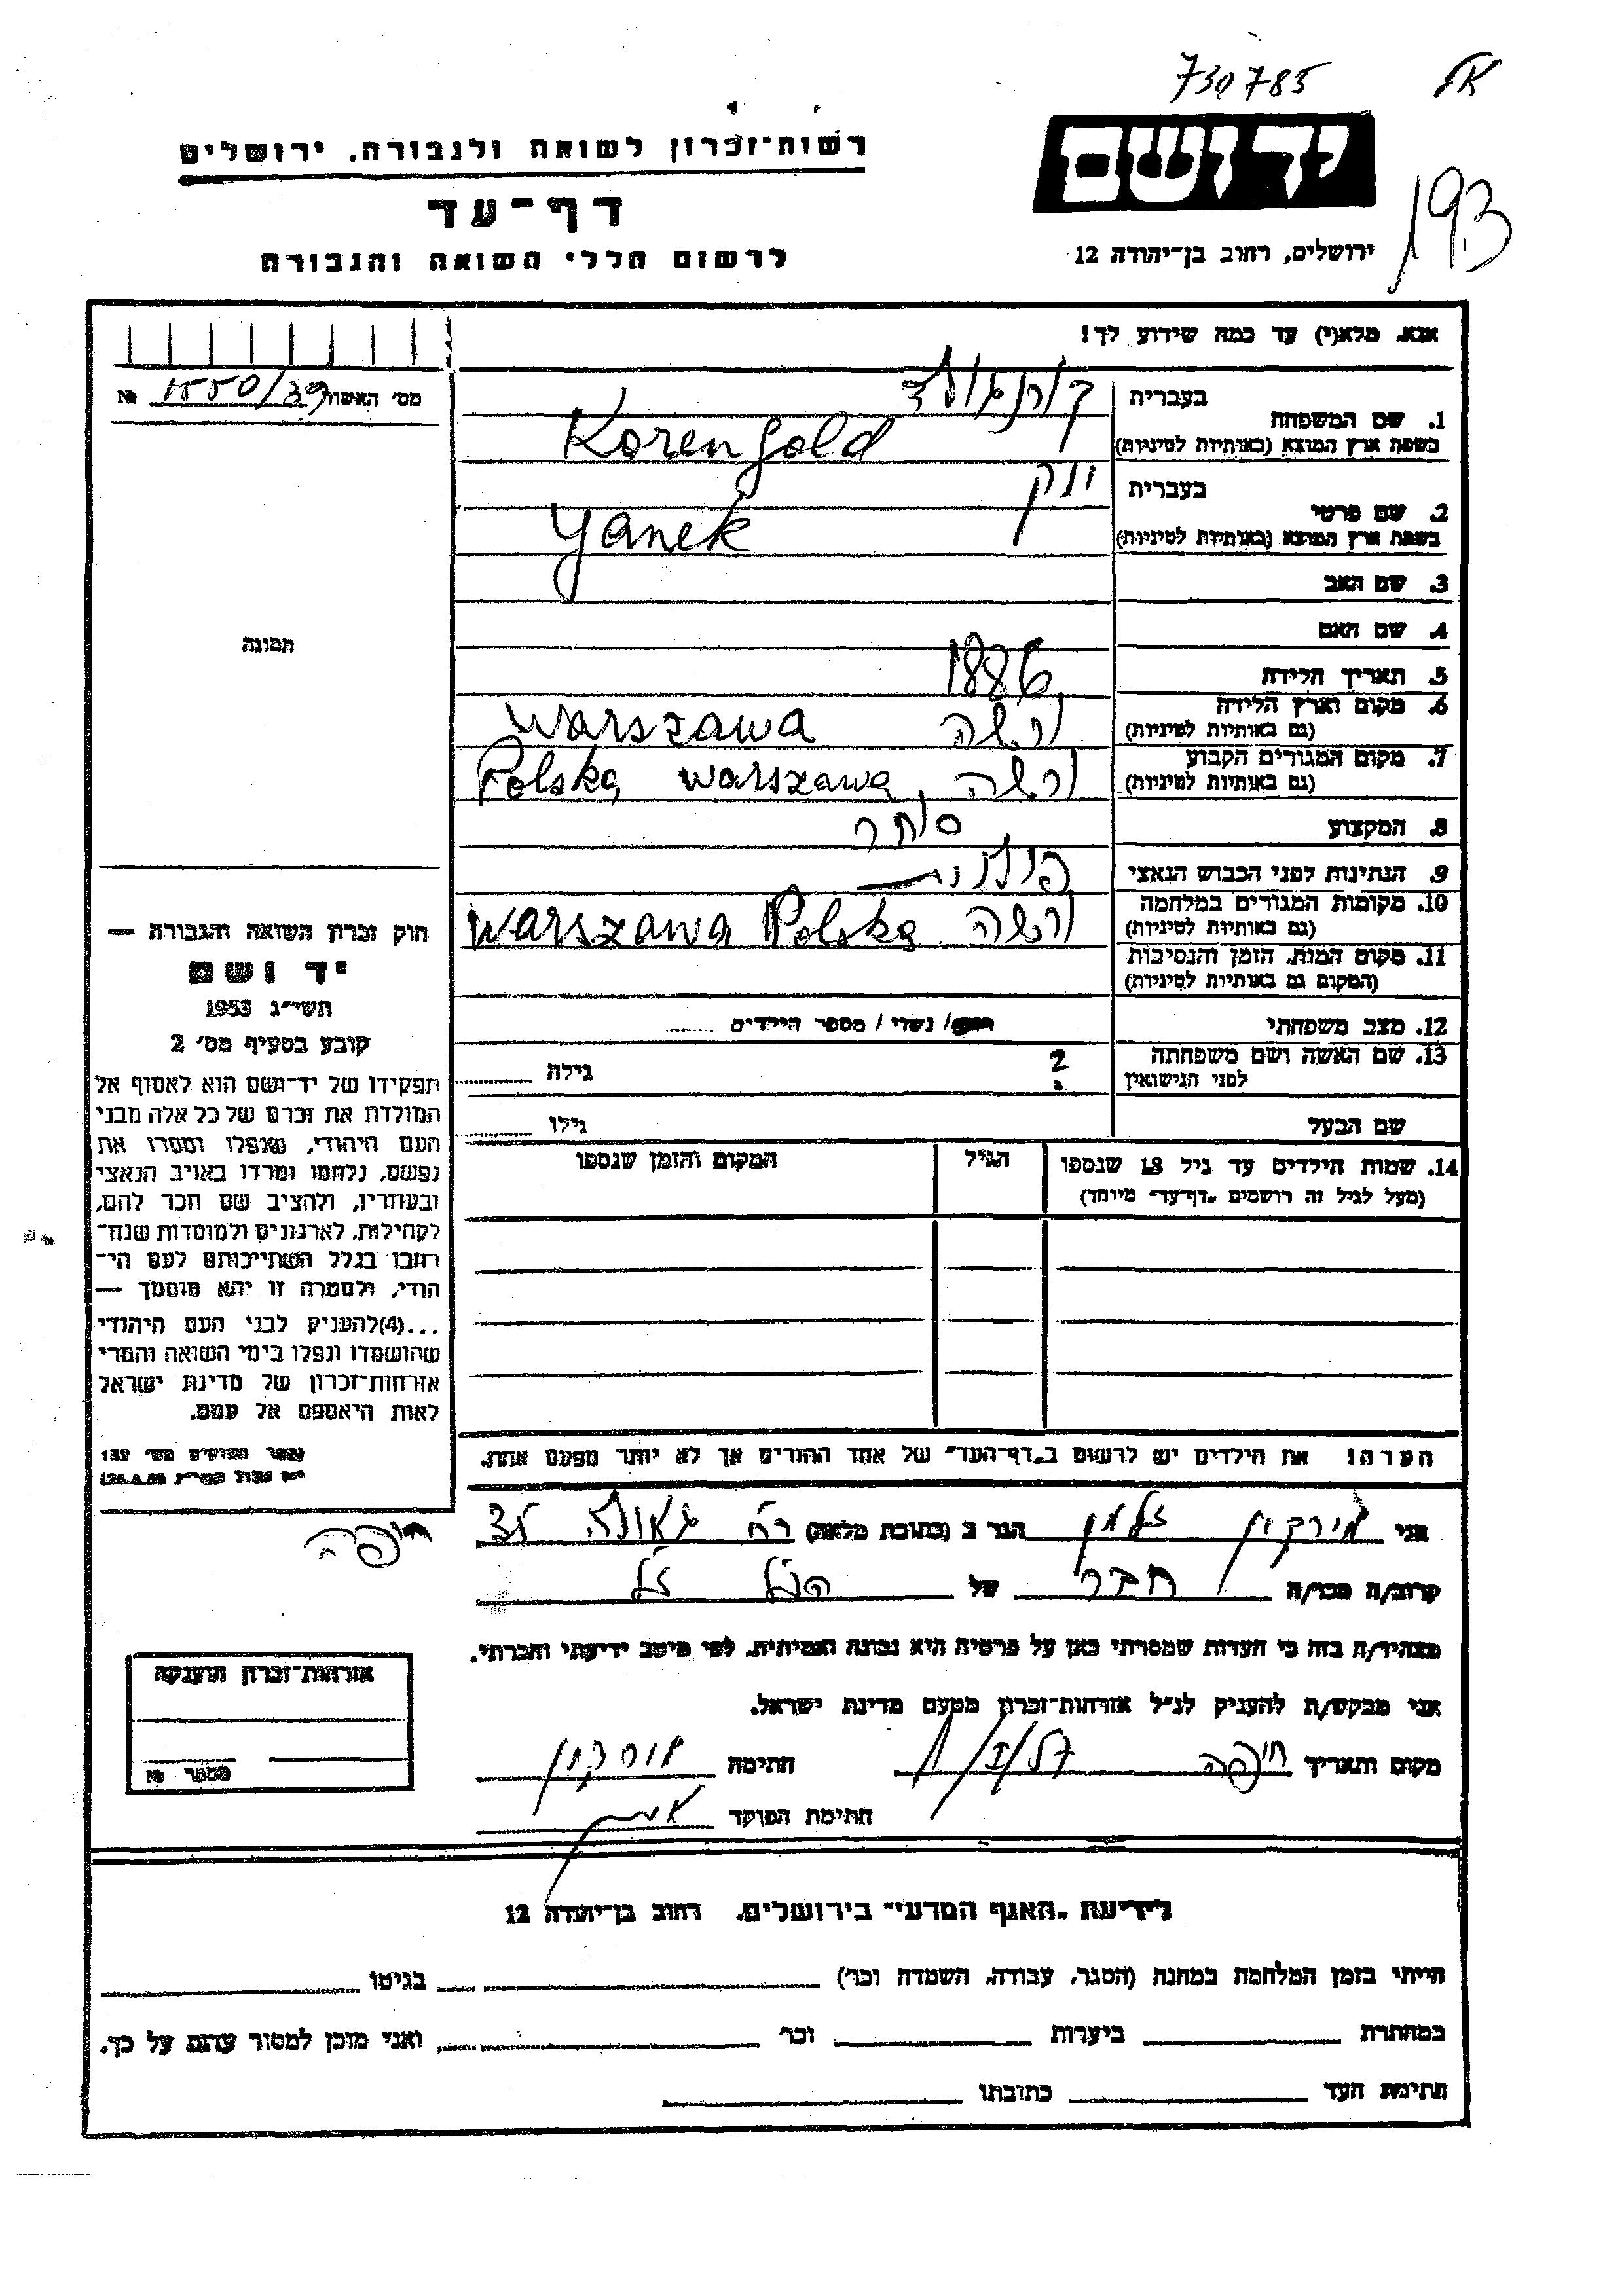 730785
רשות־זכרון לשואה ולגבורה, ירושלים
יד ושם
193
דף־עד
ירושלים, רחוב בן־יהודה 12
לרשום חללי השואה והגבורה
אנא, מלא(י) עד כמה שידוע לך!
מס' האשה 1550/39 №
1. שם המשפחה
בעברית קורנגולד
בשפת ארץ המוצא (באותיות לטיניות) Korengold
2. שם פרטי
בעברית ינק
בשפת ארץ המוצא (באותיות לטיניות) Yanek
3. שם האב
4. שם האם
תמונה
5. תאריך הלידה 1886
6. מקום וארץ הלידה ורשה Warszawa
(גם באותיות לטיניות)
7. מקום המגורים הקבוע ורשה, Warszawa Polska
(גם באותיות לטיניות)
8. המקצוע סוחר
9. הנתינות לפני הכבוש הנאצי פולנית
10. מקומות המגורים במלחמה ורשה Warszawa Polska
(גם באותיות לטיניות)
11. מקום המות, הזמן והנסיבות
(המקום גם באותיות לטיניות)
12. מצב משפחתי רווק/ נשוי / מספר הילדים
13. שם האשה ושם משפחתה ? גילה
לפני הנישואין
שם הבעל גילו
14. שמות הילדים עד גיל 18 שנספו הגיל המקום והזמן שנספו
(מעל לגיל זה רושמים "דף־עד" מיוחד)
חוק זכרון השואה והגבורה —
יד ושם
תשי"ג 1953
קובע בסעיף מס' 2
תפקידו של יד־ושם הוא לאסוף אל
המולדת את זכרם של כל אלה מבני
העם היהודי, שנפלו ומסרו את
נפשם, נלחמו ומרדו באויב הנאצי
ובעוזריו, ולהציב שם וזכר להם,
לקהילות, לארגונים ולמוסדות שנח־
רבו בגלל השתייכותם לעם הי־
הודי, ולמטרה זו יהא מוסמך —
...(4)להעניק לבני העם היהודי
שהושמדו ונפלו בימי השואה והמרי
אזרחות־זכרון של מדינת ישראל
לאות היאספם אל עמם.
הערה! את הילדים יש לרשום ב"דף־העד" של אחד ההורים אך לא יותר מפעם אחת.
אני מירקין זלמן הגר ב (כתובת מלאה) רח' גאולה
חיפה
קרוב/ה מכר/ה חבר של הנ"ל ז"ל
מצהיר/ה בזה כי העדות שמסרתי כאן על פרטיה היא נכונה ואמיתית, לפי מיטב ידיעתי והכרתי.
אני מבקש/ת להעניק לנ"ל אזרחות־זכרון מטעם מדינת ישראל.
מקום ותאריך חיפה חתימה מירקין
חתימת הפוקד
אזרחות־זכרון הוענקה
מספר №
לידיעת "האגף המדעי" בירושלים, רחוב בן־יהודה 12
הייתי בזמן המלחמה במחנה (הסגר, עבודה, השמדה וכו') בגיטו
במחתרת ביערות וכו' ואני מוכן למסור עדות על כך.
חתימת העד כתובתו